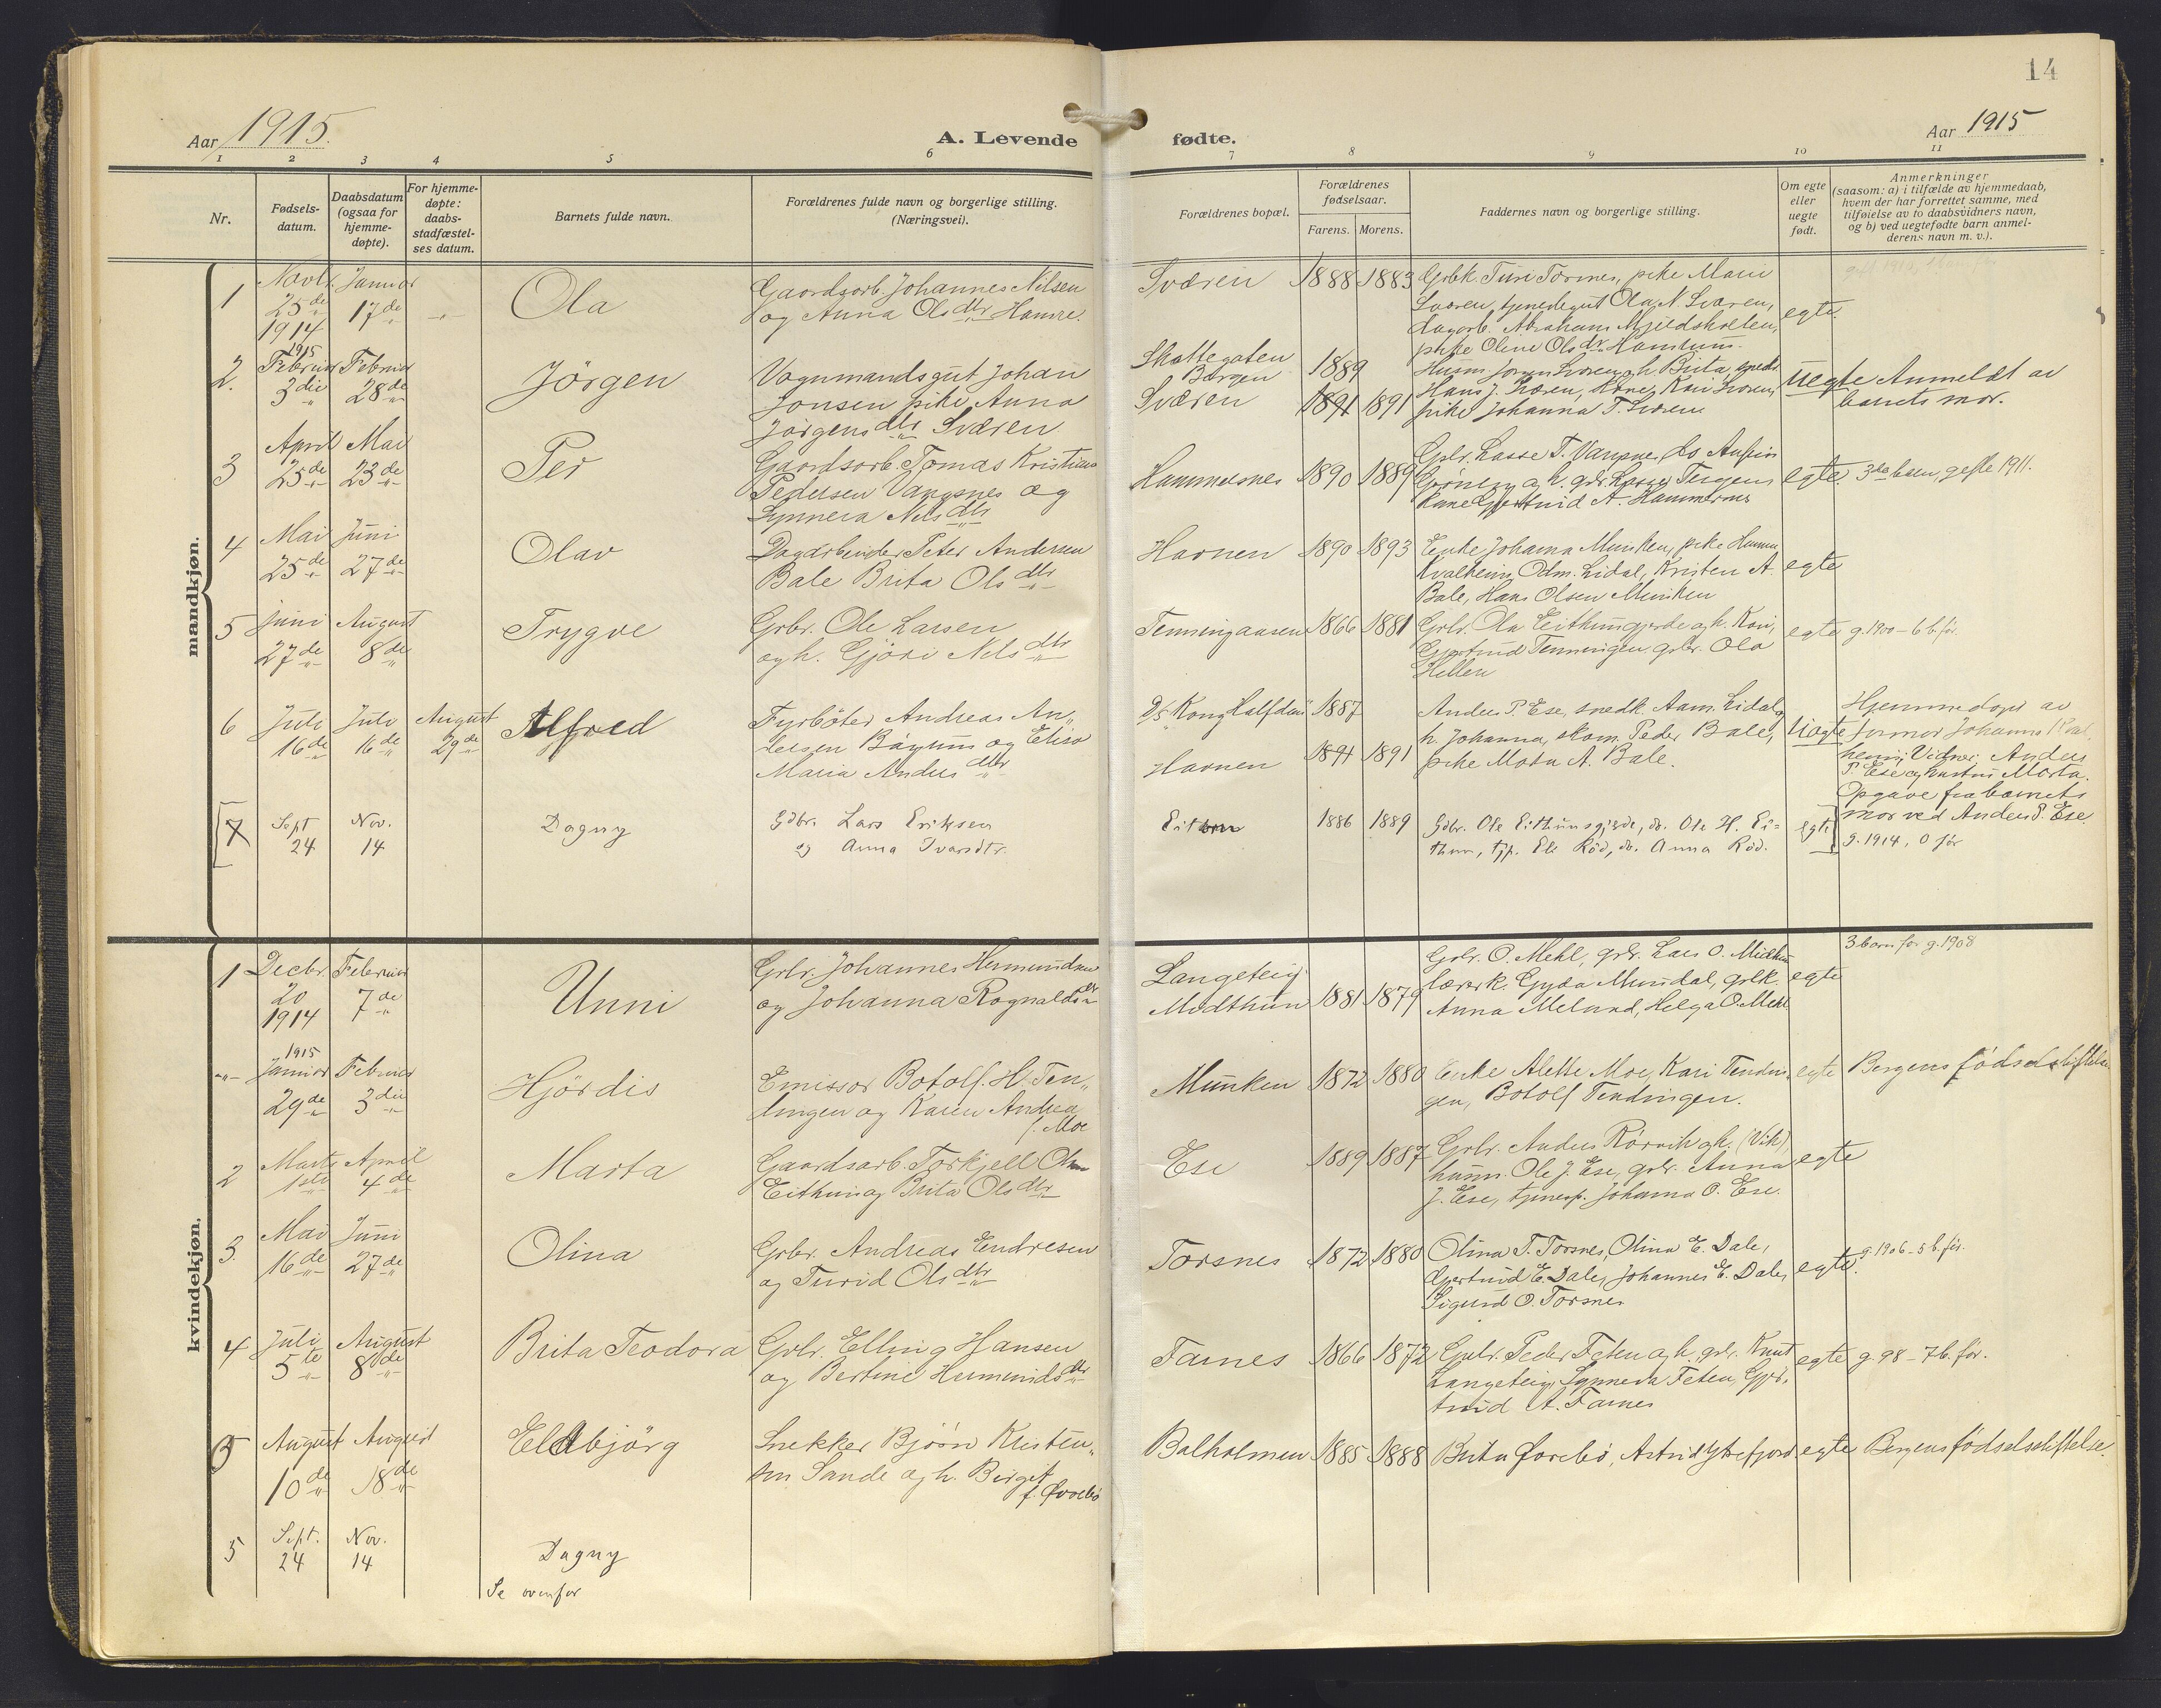 14
Aar 1915.
A. Levende
fødte.
Aar 1915
1 2 3 4 5 6 7 8 9 10 11
Nr.
Fødsels-
datum.
Daabsdatum
(ogsaa for
hjemme-
døpte).
For hjemme-
døpte:
daabs-
stadfæstel-
ses datum.
Barnets fulde navn.
Forældrenes fulde navn og borgerlige stilling.
(Næringsvei).
Forældrenes bopæl.
Forældrenes
fødselsaar.
Farens. Morens.
Faddernes navn og borgerlige stilling.
Om egte
eller
uegte
født.
Anmerkninger
(saasom: a) i tilfælde av hjemmedaab,
hvem der har forrettet samme, med
tilføielse av to daabsvidners navn,
og b) ved uegtefødte barn anmel-
derens navn m. v.).
mandkjøn.
1
Novbr.
25de
1914
Januar
17de
Ola
Gaardsarb. Johannes Nilsen
og Anna Olsdtr Hamre.
Sværen
1888 1883
Grbk. Turi Torsnes, pike Mari
Sværen, tjenedegut Ola N. Sværen,
dagarb. Abraham
pike Oline Olsdr.
egte.
2.
1915
Februar
3die
Februar
28de
Jörgen
Vognmandsgut Johan
Jonsen pike Anna
Jörgensdtr Sværen
Skattegaten
Bergen
Sværen
1889
1891 1891
Husm. Sværen og h. Brita,
Hans J. Sværen, kone Kari Sværen,
pike Johanna T. Sværen
Uegte
Anmeldt av
barnets mor.
3
April
25de
Mai
23de
Per
Gaardsarb. Tomas Kristian
Pedersen Vangsnes og
Synneva Nilsdtr
Hammersnes
1890 1889
Grbr. Lasse T. Vangsnes, do
og h. grbr. Lasse
kone Gjertrud A. Hammersnes
egte.
3de barn, gifte 1911.
4
Mai
25de
Juni
27de
Olav
Dagarbeider Peter Andersen
Bale Brita Olsdtr
Havnen
1890 1893
Enke Johanna Munken, pike Hanna
Kvalheim, Odm. Lidal, Kristen A.
Bale, Hans Olsen Munken
egte
5
Juni
27de
August
8de
Trygve
Grbr. Ole Larsen
og h. Gjöri Nilsdtr
Tenningaasen
1866 1881
Grbr. Ola Eithungjerde og h. Kari,
Gjertrud Tenningen, grbr. Ola
Hellen
egte
g. 1900 – 6 b. før.
6
Juli
16de
Juli
16de
August
29de
Alfred
Fyrböter Andreas An„
dersen Böyum og Elisa
Maria Andersdtr
D/S Kong Halfdan
Havnen
1887
1891 1891
Anders P. Ese, snedk. Aam. Lidal og
h. Johanna, skom. Peder Bale,
pike Marta A. Bale.
Uegte
Hjemmedøpt av
jormor Johanna Kval„
heim; Vidner: Anders
P. Ese og hustru Marta.
Opgave fra barnets
mor ved Anders P. Ese.
[7
Sept
24
Nov.
14
Dagny
Gdbr. Lars Eriksen
og Anna Ivarsdtr.
Eitun
1886 1889
Gdbr. Ole Eithunsgjerde, do. Ole H. Ei=
thun, tjp. Eli Röd, do. Anna Röd.
egte]
g. 1914, 0 før
kvindekjøn.
1
Decbr.
20
1914
Februar
7de
Unni
Grbr. Johannes Hermundsen
og Johanna Rognaldsdtr
Langeteig
Midthun
1881 1879
Grbr. O. Mehl, grbr. Lars O. Midthun
lærerk. Gyda Mundal, grbk.
Anna Melund, Helga O. Mehl
egte
3 barn før g. 1908
-"-
1915
Januar
29de
Februar
3die
Hjördis
Emissær Botolf H. Ten„
dingen og Karen Andrea
f. Moe
Munken
1872 1880
Enke Alette Moe, Kari Tendin„
gen, Botolf Tendingen.
egte
Bergens fødselsstiftelse
2
Marts
1ste
April
4de
Marta
Gaardsarb. Torkjell Olsen
Eithun og Brita Olsdtr
Ese
1889 1887
Grbr. Anders Rörvik og h. (Vik)
husm. Ole J. Ese, grbr. Anna
J. Ese, tjenesp. Johanna O. Ese.
egte
3.
Mai
16de
Juni
27de
Olina
Grbr. Andreas Endresen
og Turid Olsdtr
Torsnes
1872 1880
Olina T. Torsnes, Olina E. Dale,
Gjertrud E. Dale, Johannes E. Dale,
Sigurd O. Torsnes
egte.
g. 1906 – 5 b. før.
4
Juli
5te
August
8de
Brita Teodora
Grbr. Elling Hansen
og Bertine Hermundsdtr
Farnes
1866 1872
Grbr. Peder Feten og h. grbr. Knut
Langeteig, Synneva Feten, Gjer„
trud A. Farnes
egte
g. 98 – 7 b. før.
5
August
10de
August
18de
Eldbjörg
Snekker Bjørn Kristen„
sen Sande og h. Birgit
f. Øvrebø
Balholmen
1885 1888
Brita Øvrebø, Astrid Ytrefjord.
egte
Bergens fødselsstiftelse.
5
Sept.
24
Nov.
14
Dagny
Se ovenfor